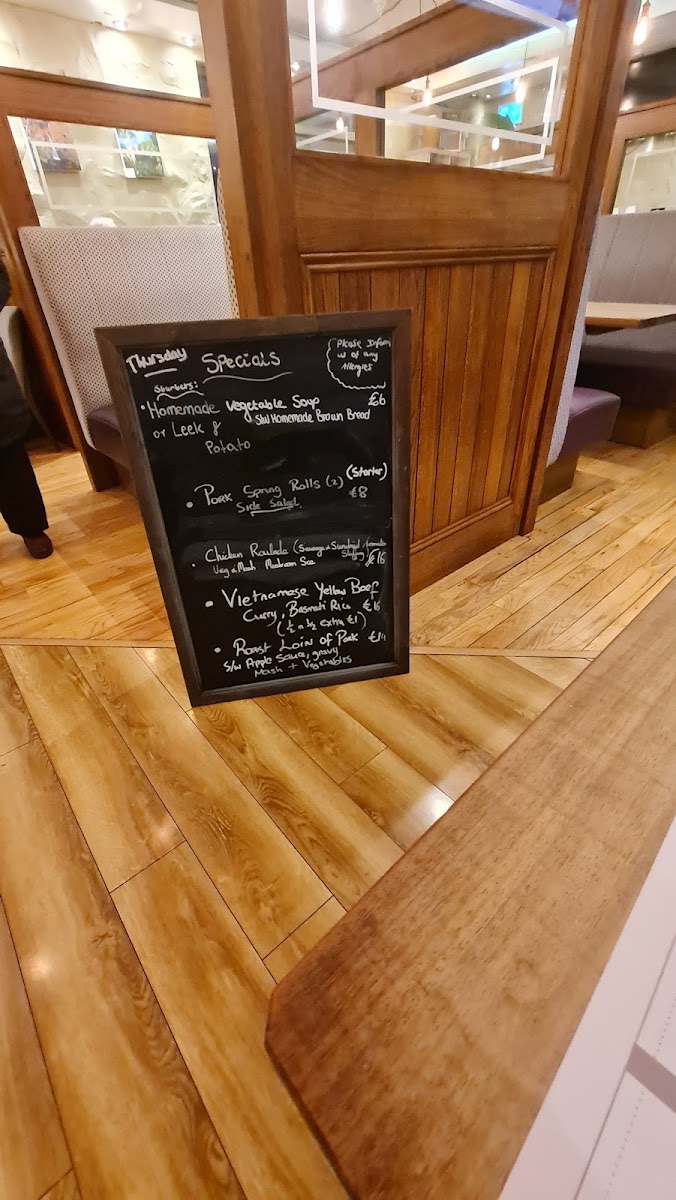 Thursday Specials
Please Inform
us of any
Allergies
Starters:
• Homemade Vegetable Soup €6
S/W Homemade Brown Bread
or Leek &
Potato
(Starter)
• Pork Spring Rolls (2) €8
Side Salad.
• Chicken Roulade (Sausage & Sundried tomato
Stuffing) €16
Veg & Mash Mushroom Sce
• Vietnamese Yellow Beef
Curry, Basmati Rice €16
(½ n ½ extra €1)
• Roast Loin of Pork
S/w Apple Sauce, gravy
Mash + Vegetables